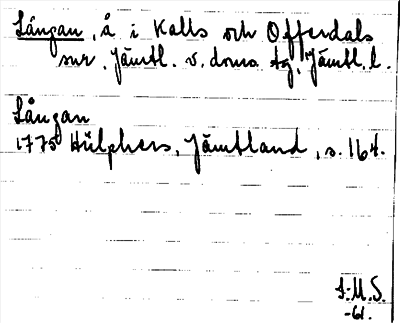 Långan, å i Kalls och Offerdals
snr, Jämtl. v. doms tg, Jämtl. l.
Långan
1775 Hülphers, Jämtland, s. 164.
I:M.S.
-61.